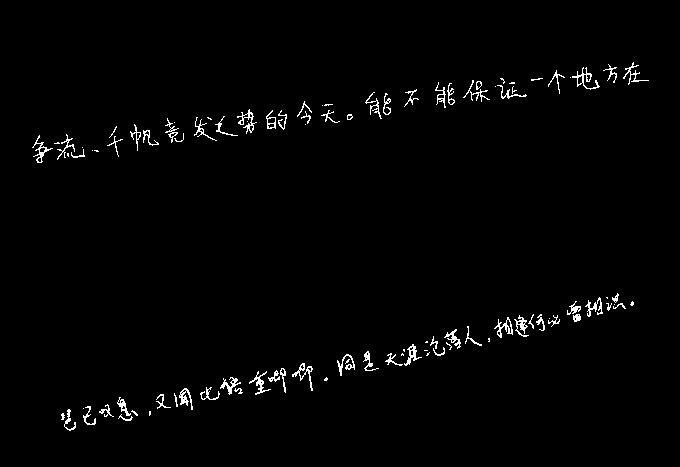 争流、千帆竞发之势的今天。能不能保证一个地方在
琶已叹息，又闻此语重唧唧。同是天涯沦落人，相逢何必曾相识。